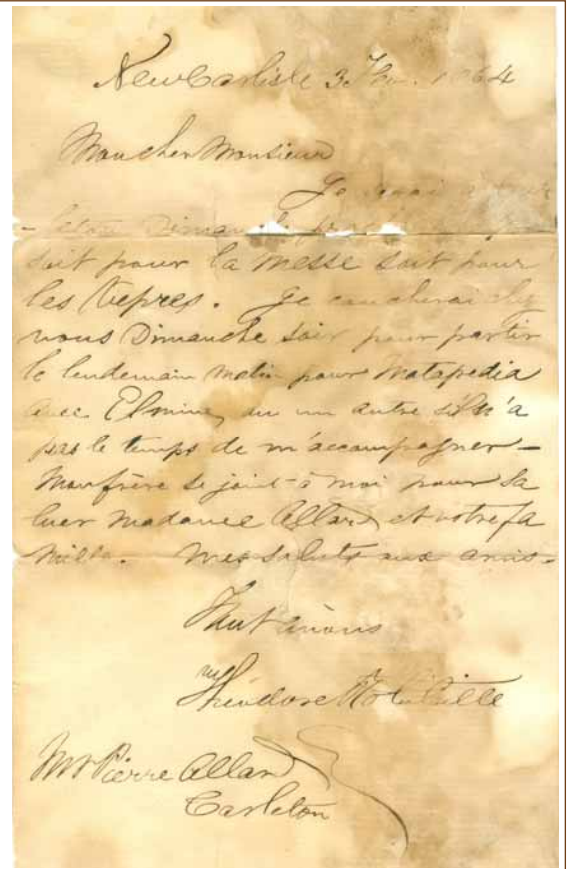 New Carlisle 3 1864
Mon cher Monsieur
Je serai à
-leton Dimanche
soit pour la Messe soit pour
les Vepres. Je coucherai chez
vous Dimanche soir pour partir
le lendemain matin pour Matapedia
avec Elmine, ou un autre s'il n'a
pas le temps de m'accompagner -
Mon frère se joint à moi pour sa
luer Madame Allard et votre fa
mille. Mes saluts aux amis -
Tout à vous
Théodore
Mr Pierre Allard
Carleton